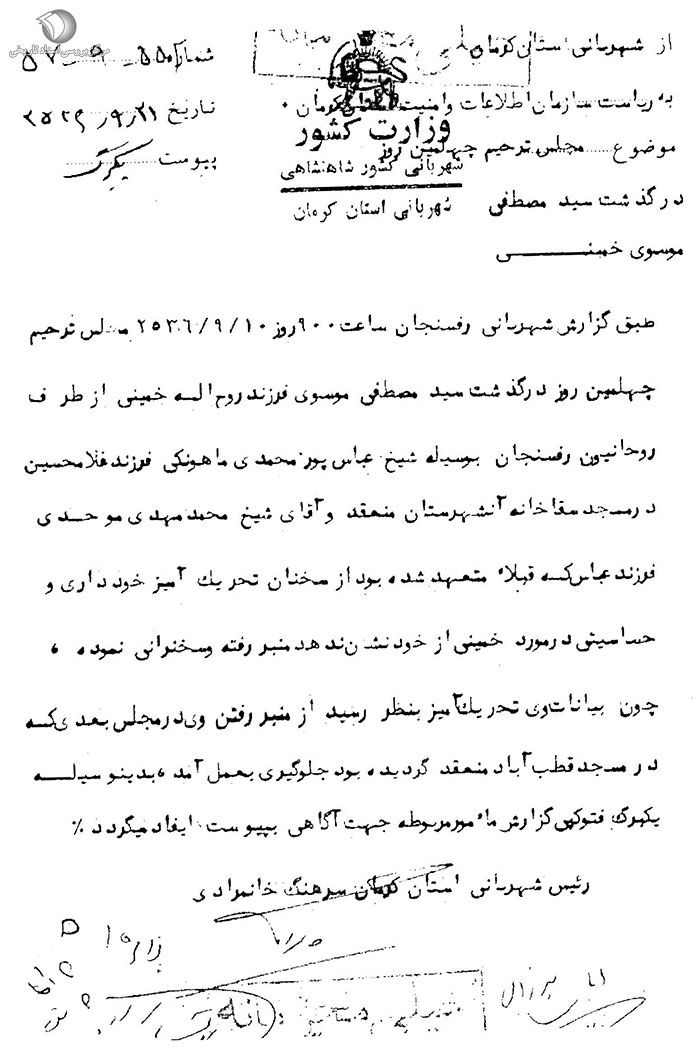 مرکز بررسی اسناد تاریخی
از شهربانی استان کرمان
به ریاست سازمان اطلاعات و امنیت استان کرمان ۰
موضوع مجلس ترحیم چهلمین روز
درگذشت سید مصطفی
موسوی خمینــــــــی
وزارت کشور
شهربانی کشور شاهنشاهی
شهربانی استان کرمان
شماره
تاریخ ۲۵۳۶/۹/۲۱
پیوست یکبرگ
طبق گزارش شهربانی رفسنجان ساعت ۹۰۰ روز ۲۵۳۶/۹/۱۰ مجلس ترحیم
چهلمین روز درگذشت سید مصطفی موسوی فرزند روح اله خمینی از طرف
روحانیون رفسنجان بوسیله شیخ عباس پورمحمدی ماهونکی فرزند غلامحسین
درمسجد سقاخانه آنشهرستان منعقد و آقای شیخ محمد مهدی موحدی
فرزند عباس که قبلاً متعهد شده بود از سخنان تحریک آمیز خودداری و
حساسیتی درمورد خمینی از خود نشان ندهد منبر رفته وسخنرانی نموده ،
چون بیانات وی تحریک آمیز بنظر رسید از منبر رفتن وی درمجلس بعدی که
در مسجد قطب آباد منعقد گردیده بود جلوگیری بعمل آمد ، بدینوسیلــه
یکبرگ فتوکپی گزارش مأمور مربوطه جهت آگاهی بپیوست ایفاد میگردد ٪
رئیس شهربانی استان کرمان سرهنگ خانمرادی